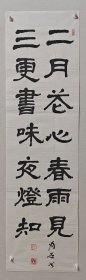 二月花心春雨見
三更書味夜燈知